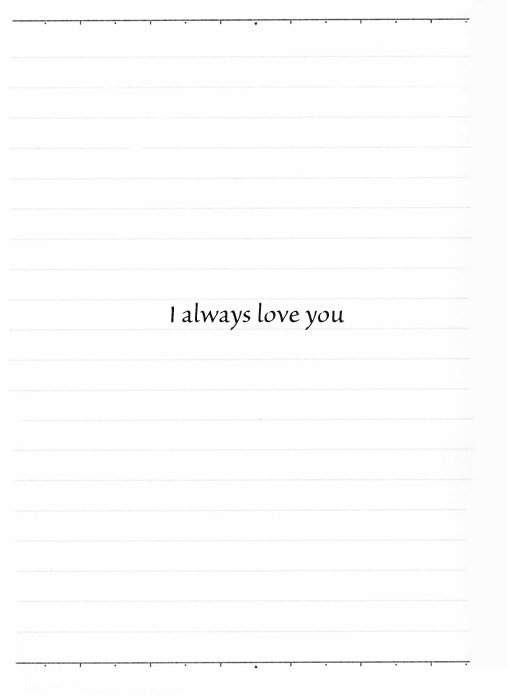 I always love you